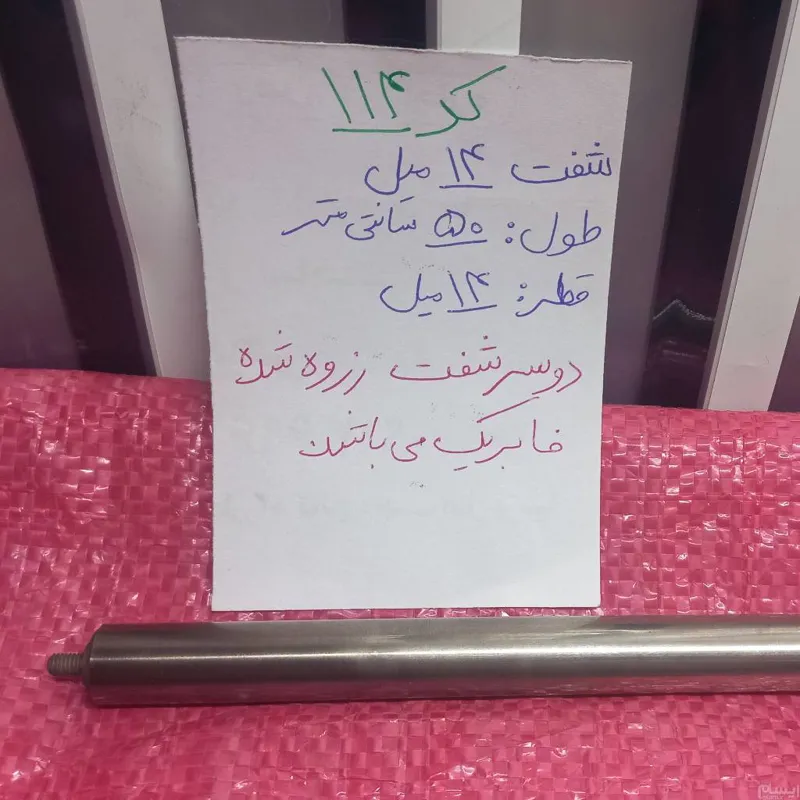 کد ۱۱۴
شفت ۱۴ میل
طول: ۵۰ سانتی متر
قطر: ۱۴ میل
دوسر شفت رزوه شده
فابریک می باشد
ایسام